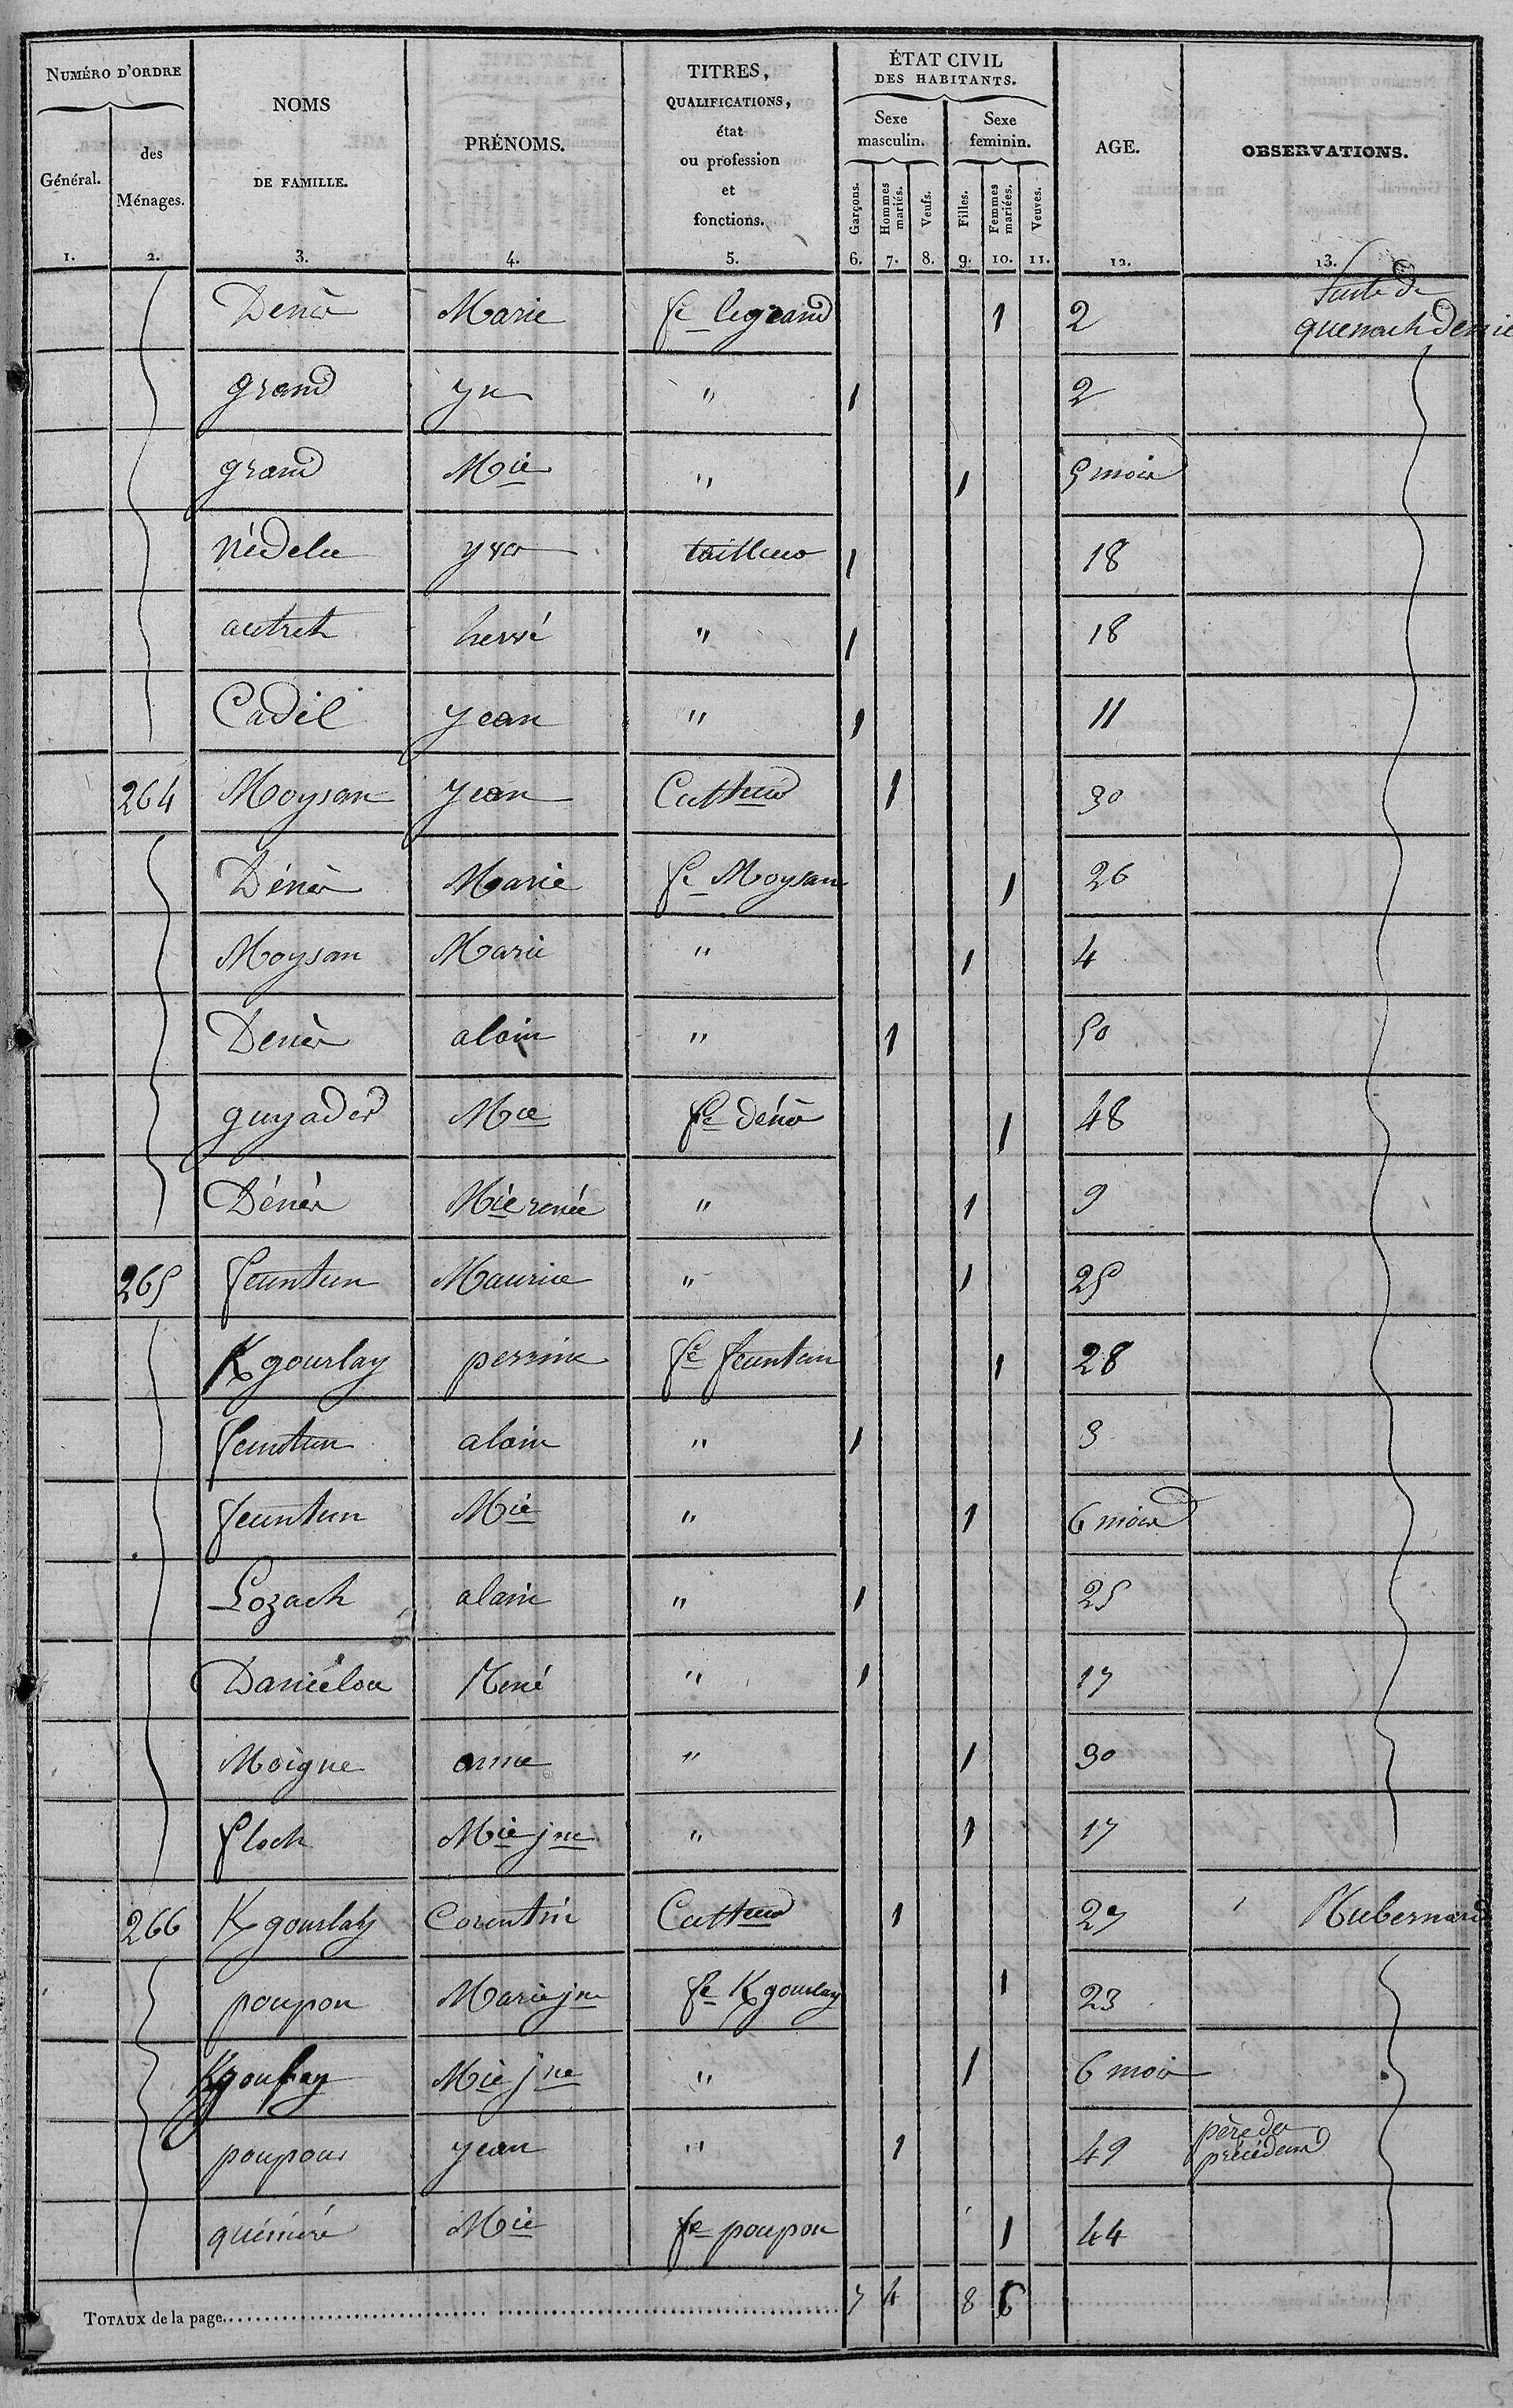 NUMÉRO D'ORDRE
Général.
des
Ménages.
NOMS
DE FAMILLE.
PRÉNOMS.
TITRES,
QUALIFICATIONS,
état
ou profession
et
fonctions.
ÉTAT CIVIL
DES HABITANTS.
Sexe
masculin.
Sexe
feminin.
Garçons.
Hommes mariés.
Veufs.
Filles.
Femmes mariées.
Veuves.
AGE.
OBSERVATIONS.
1. 2. 3. 4. 5. 6. 7. 8. 9. 10. 11. 12. 13.
Suite de
Denèr Marie fe legrand 1 2
grand yu " 1 2
grand Mie " 1 5 mois
nédelec yves tailleur 1 18
autret hervé " 1 18
Cadil yean " 1 11
264 Moysan yean Cultteur 1 30
Dénèr Marie fe Moysan 1 26
Moysan Marie " 1 4
Denèr alain " 1 50
guyader Mie fe dénèr 1 48
Dénèr Mie renée " 1 9
265 feuntun Maurice " 1 25
K gourlay perrine fe feuntun 1 28
feuntun alain " 1 3
feuntun Mie " 1 6 mois
Lozach alain " 1 25
Daniélou René " 1 17
Moigne anne " 1 30
floch Mie jne " 1 17
266 K gourlay Corentin Cultteur 1 27 Mubernard
poupon Marie jne fe K gourlay 1 23
Kgourlay Mie jne " 1 6 mois
poupon yean " 1 49 père du
précédent
quéméré Mie fe poupon 1 44
TOTAUX de la page 7 4 8 6